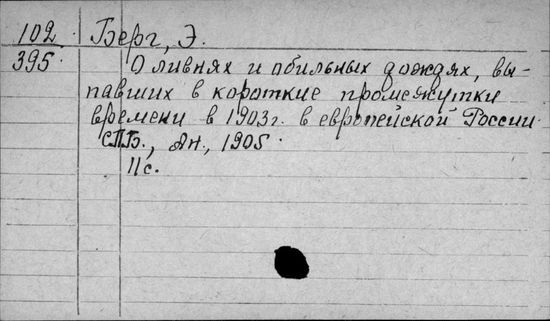 102. Берг, Э.
395. О ливнях и обильных дождях, вы-
павших в короткие промежутки
времени в 1903г. в европейской России.
СПБ., Ан., 1905
11с.